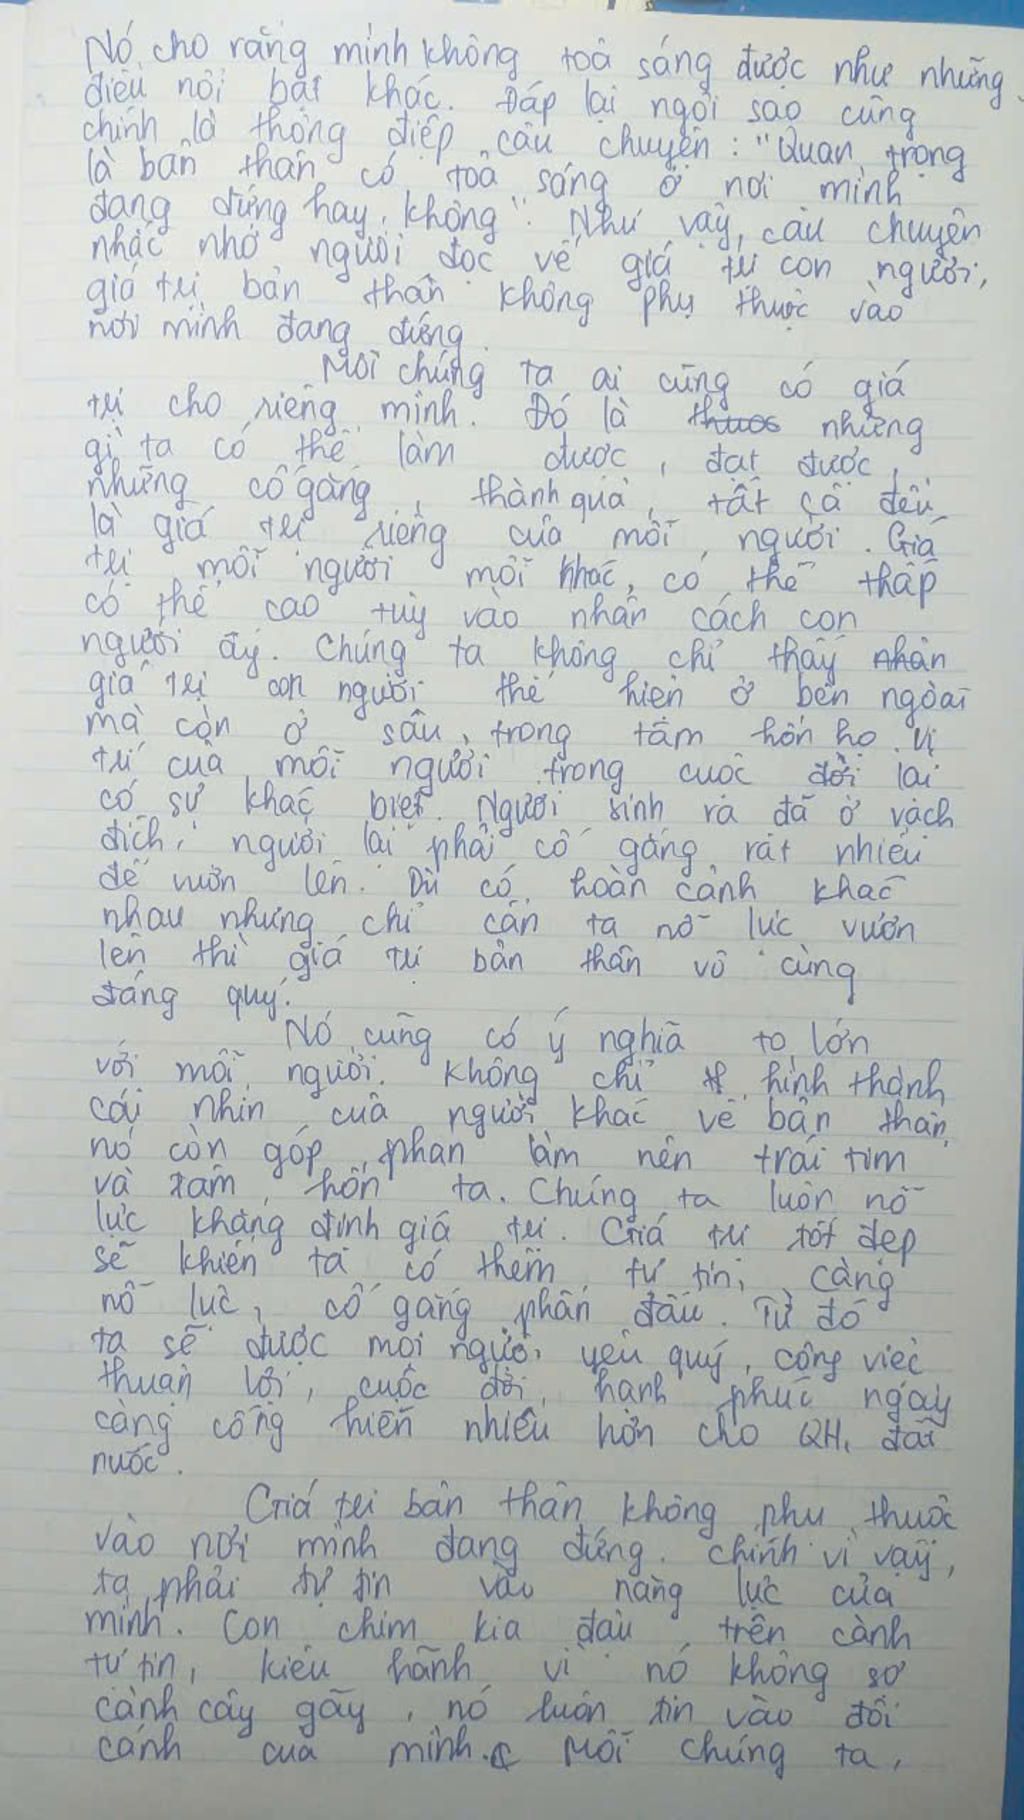 Nó cho rằng mình không toả sáng được như những
điều nổi bật khác. Đáp lại ngôi sao cũng
chính là thông điệp câu chuyện: "Quan trọng
là bản thân có toả sáng ở nơi mình
đang đứng hay không". Như vậy, câu chuyện
nhắc nhở người đọc về giá trị con người,
giá trị bản thân không phụ thuộc vào
nơi mình đang đứng.
Mỗi chúng ta ai cũng có giá
trị cho riêng mình. Đó là những
gì ta có thể làm được, đạt được,
những cố gắng, thành quả, tất cả đều
là giá trị riêng của mỗi người. Giá
trị mỗi người mỗi khác, có thể thấp
có thể cao tùy vào nhân cách con
người ấy. Chúng ta không chỉ thấy
giá trị con người thể hiện ở bên ngoài
mà còn ở sâu trong tâm hồn họ. Vị
trí của mỗi người trong cuộc đời lại
có sự khác biệt. Người sinh ra đã ở vạch
đích, người lại phải cố gắng rất nhiều
để vươn lên. Dù có hoàn cảnh khác
nhau nhưng chỉ cần ta nỗ lực vươn
lên thì giá trị bản thân vô cùng
đáng quý.
Nó cũng có ý nghĩa to lớn
với mỗi người. Không chỉ hình thành
cái nhìn của người khác về bản thân,
nó còn góp phần làm nên trái tim
và tâm hồn ta. Chúng ta luôn nỗ
lực khẳng định giá trị. Giá trị tốt đẹp
sẽ khiến ta có thêm tự tin, càng
nỗ lực, cố gắng phấn đấu. Từ đó
ta sẽ được mọi người yêu quý, công việc
thuận lợi, cuộc đời hạnh phúc ngày
càng cống hiến nhiều hơn cho QH, đất
nước.
Giá trị bản thân không phụ thuộc
vào nơi mình đang đứng. Chính vì vậy,
ta phải tự tin vào năng lực của
mình. Con chim kia đậu trên cành
tự tin, kiêu hãnh vì nó không sợ
cành cây gãy, nó luôn tin vào đôi
cánh của mình. Mỗi chúng ta,